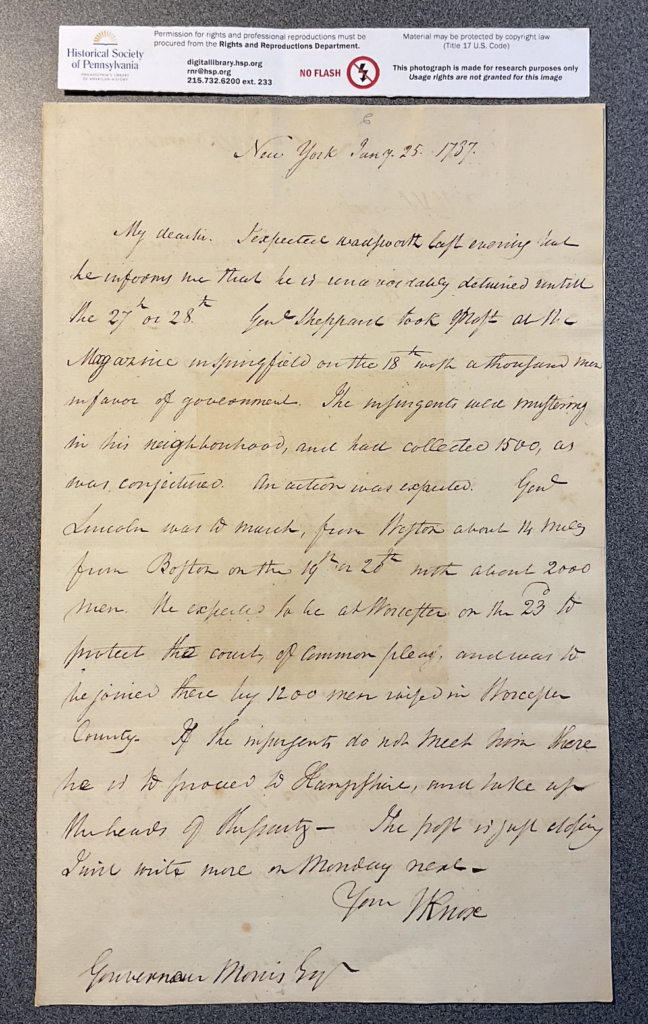 Historical Society
of Pennsylvania
PHILADELPHIA'S LIBRARY
OF AMERICAN HISTORY
Permission for rights and professional reproductions must be
procured from the Rights and Reproductions Department.
digitallibrary.hsp.org
rnr@hsp.org
215.732.6200 ext. 233
NO FLASH
Material may be protected by copyright law
(Title 17 U.S. Code)
This photograph is made for research purposes only
Usage rights are not granted for this image
New York Jany. 25. 1787.
My dear sir. I expected wadsworth last evening but
he informs me that he is unavoidably detained untill
the 27th or 28th Genl Sheppard took post at the
Magazine in springfield on the 18th with a thousand men
in favor of government. The insurgents were mustering
in his neighbourhood, and had collected 1500, as
was conjectured. An action was expected. Genl
Lincoln was to march, from Weston about 14 miles
from Boston on the 19th or 20th with about 2000
men. He expected to be at Worcester on the 23d to
protect the court, of Common pleas, and was to
be joined there by 1200 men raised in Worcester
County. If the insurgents do not meet him there
he is to proceed to Hampshire, and take up
the heads of the party — The post is just closing
I will write more on Monday next —
Your HKnox
Gouverneur Morris Esqr